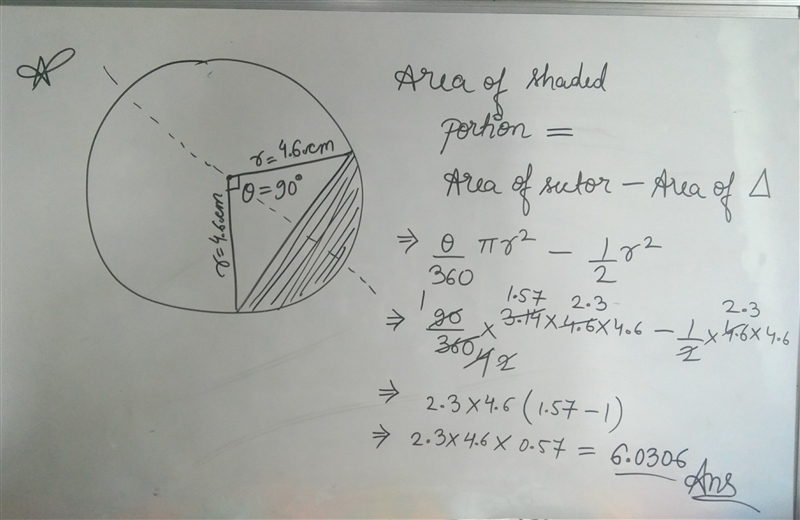 r = 4.6 cm
θ = 90°
r = 4.6 cm
Area of shaded
Portion =
Area of sector – Area of Δ
⇒ θ/360 πr² – 1/2 r²
⇒ 90/360 × 3.14 × 4.6 × 4.6 – 1/2 × 4.6 × 4.6
1 1.57 2.3 2.3
4 2
⇒ 2.3 × 4.6 (1.57 – 1)
⇒ 2.3 × 4.6 × 0.57 = 6.0306 Ans